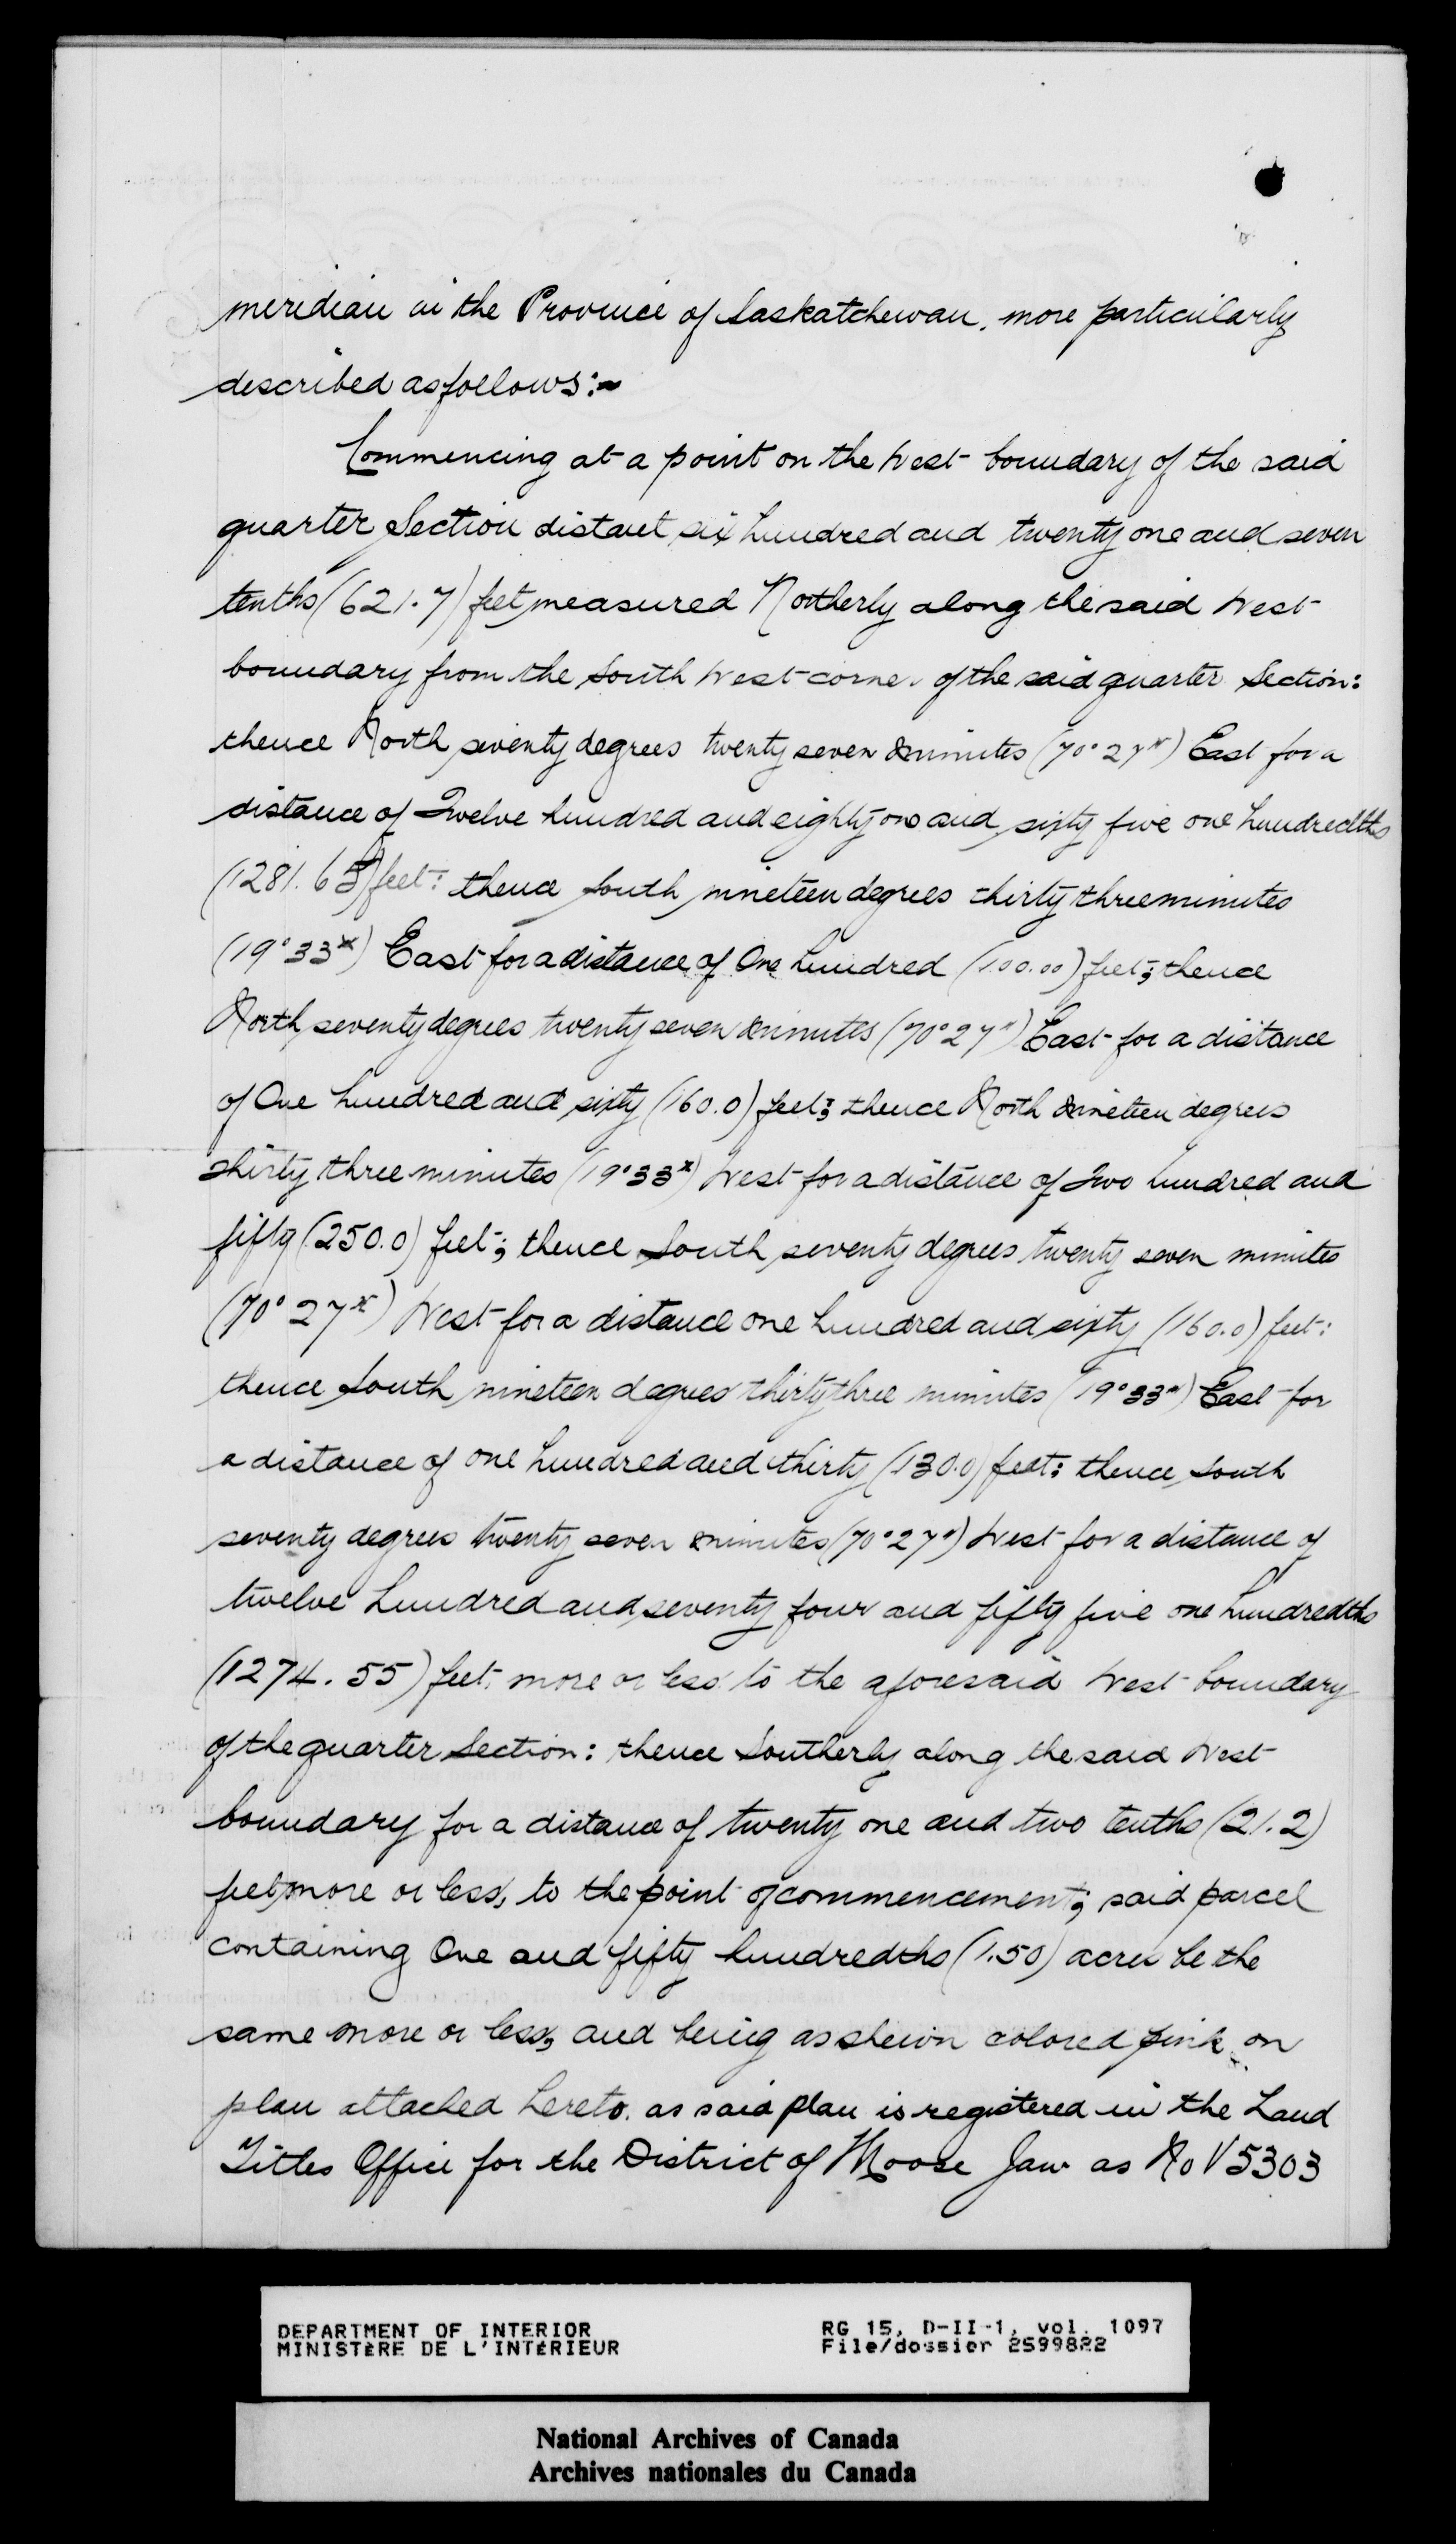 meridian in the Province of Saskatchewan, more particularly
described as follows:-
Commencing at a point on the West boundary of the said
quarter Section distant six hundred and twenty one and seven
tenths (621.7) feet, measured Northerly along the said West
boundary from the South West corner of the said quarter Section:
thence North seventy degrees twenty seven minutes (70° 27") East for a
distance of Twelve hundred and eighty one and sixty five one hundredths
(1281.65) feet: thence South nineteen degrees thirty three minutes
(19° 33") East for a distance of One hundred (100.00) feet; thence
North seventy degrees twenty seven minutes (70° 27") East for a distance
of One hundred and sixty (160.0) feet; thence North nineteen degrees
thirty three minutes (19° 33") West for a distance of Two hundred and
fifty (250.0) feet; thence South seventy degrees twenty seven minutes
(70° 27") West for a distance one hundred and sixty (160.0) feet:
thence South nineteen degrees thirty three minutes (19° 33") East for
a distance of one hundred and thirty (130.0) feet: thence South
seventy degrees twenty seven minutes (70° 27") West for a distance of
twelve hundred and seventy four and fifty five one hundredths
(1274.55) feet, more or less to the aforesaid West boundary
of the quarter Section: thence Southerly along the said West
boundary for a distance of twenty one and two tenths (21.2)
feet, more or less, to the point of commencement; said parcel
containing One and fifty hundredths (1.50) acres be the
same more or less, and being as shewn colored pink on
plan attached hereto. as said plan is registered in the Land
Titles Office for the District of Moose Jaw as No V5303
DEPARTMENT OF INTERIOR
MINISTÈRE DE L'INTÉRIEUR
RG 15, D-II-1, vol. 1097
File/dossier 2599822
National Archives of Canada
Archives nationales du Canada